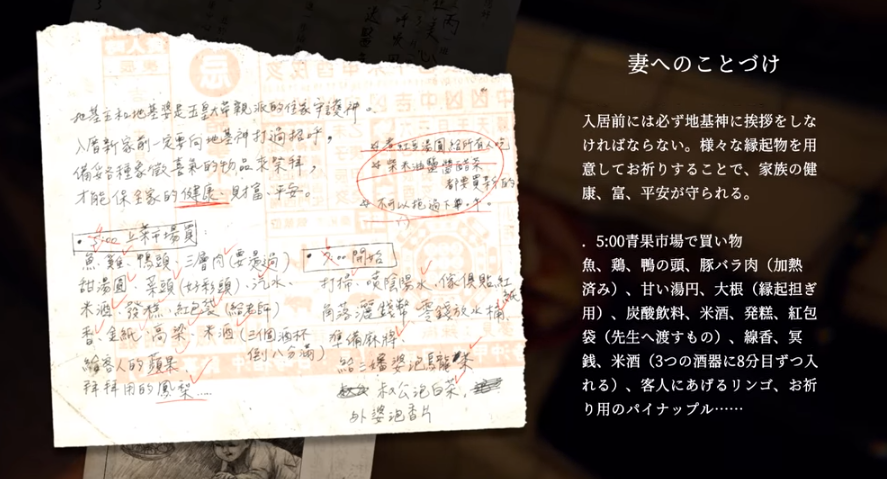 地基主和地基婆是玉皇大帝親派的住家守護神。
入厝新家前一定要向地基神打過招呼,
備妥各種象徵喜氣的物品來祭拜,
才能保全家的健康、財富、平安。
☆煮紅豆湯圓給所有人吃
☆柴米油鹽醬醋茶
都要買新的
☆不可以拖過下午
• 5:00 果菜市場買:
魚、雞、鴨頭、三層肉(要燙過)
甜湯圓、菜頭(好彩頭)、汽水、
米酒、發糕、紅包袋(給老師)
香、金紙、高粱、米酒(三個酒杯
倒八分滿)
給客人的蘋果、
拜拜用的鳳梨……
開始
打掃、噴陰陽水、傢俱貼紅紙
角落灑錢幣、零錢放水桶,
準備麻將
給三嬸婆泡烏龍茶
叔公泡白茶,
外婆泡香片
妻へのことづけ
入居前には必ず地基神に挨拶をしな
ければならない。様々な縁起物を用
意してお祈りすることで、家族の健
康、富、平安が守られる。
．5:00青果市場で買い物
魚、鶏、鴨の頭、豚バラ肉（加熱
済み）、甘い湯円、大根（縁起担ぎ
用）、炭酸飲料、米酒、発糕、紅包
袋（先生へ渡すもの）、線香、冥
銭、米酒（3つの酒器に8分目ずつ入
れる）、客人にあげるリンゴ、お祈
り用のパイナップル……